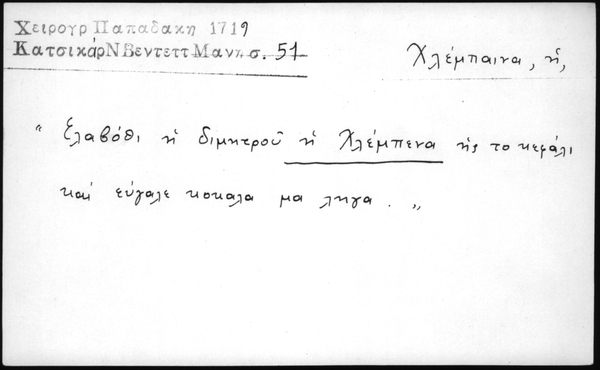 Χειρογρ Παπαδακη 1719
ΚατσικάρΝΒεντεττΜανη σ. 51
Χλέμπαινα, ἡ,
" ἐλαβόθι ἡ διμητροῦ ἡ Χλέμπενα ἡς το κεφάλι
καί εὐγαλε κοκαλα μα ληγα . "